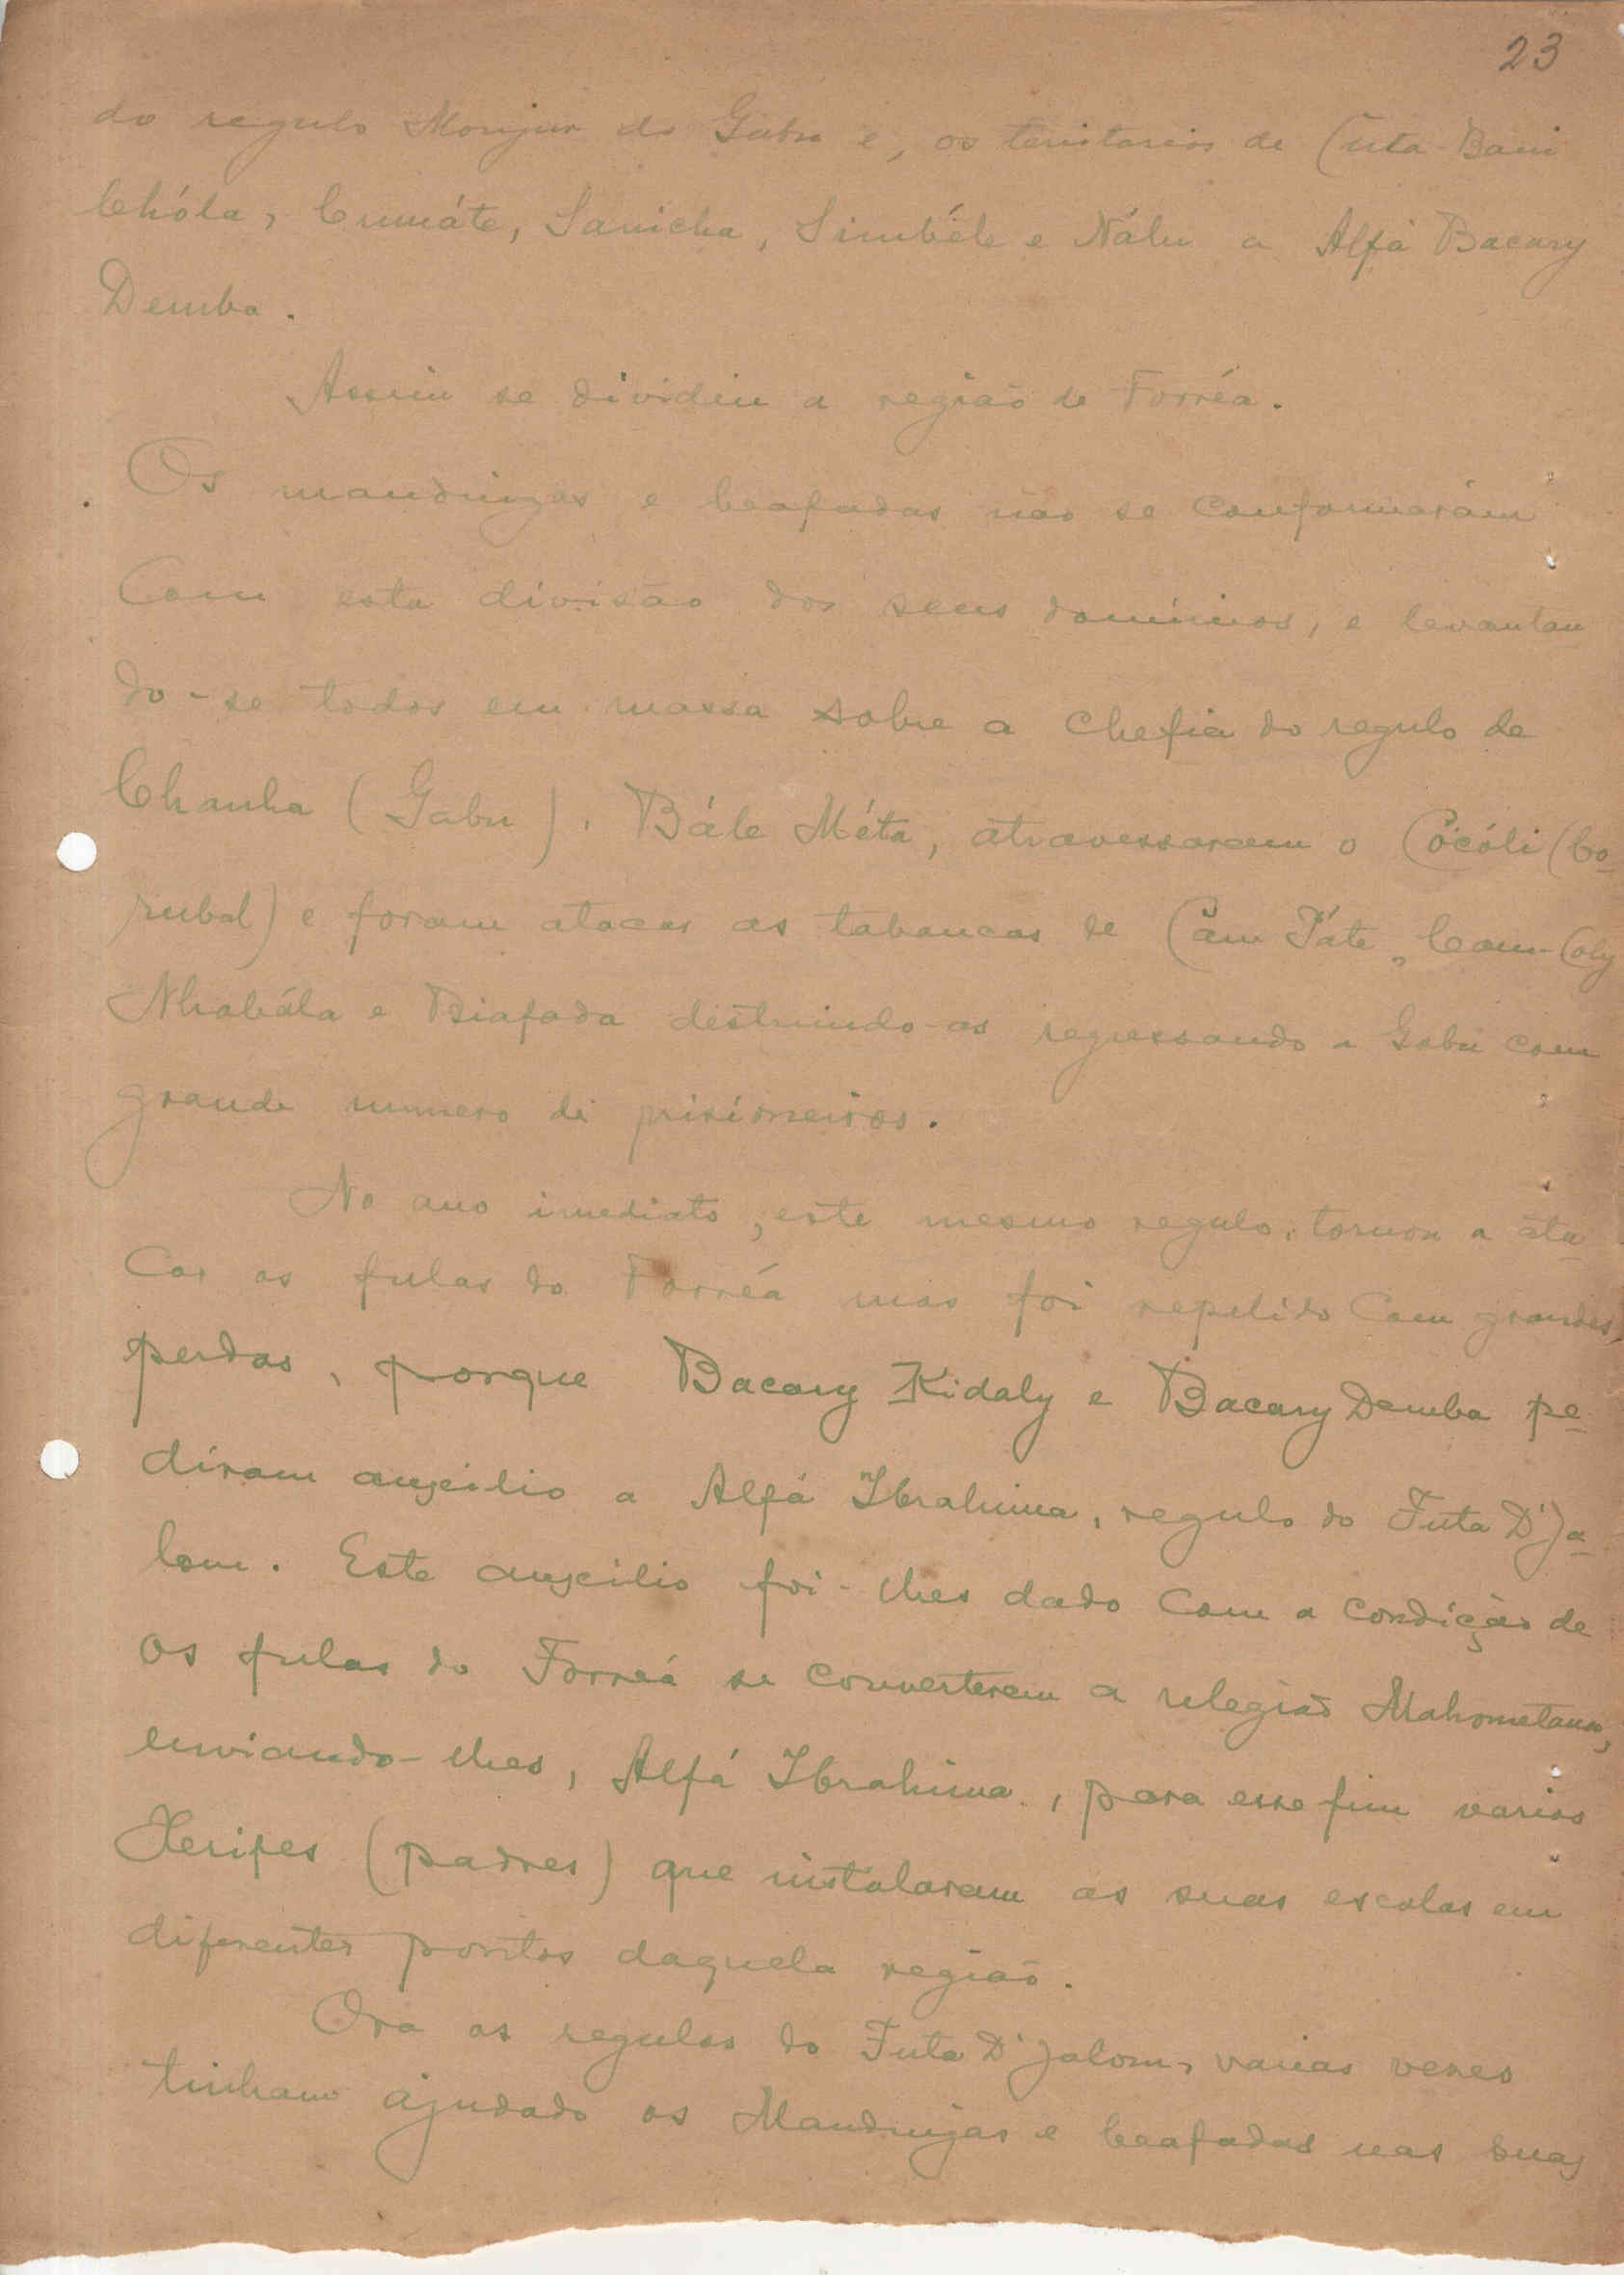 23
do regulo Monjur do Gabu e, os territorios de Cuta-Bani
Chóla, Cumáte, Sanicha, Simbéle e Nálu a Alfá Bacary
Demba.
Assim se dividiu a região de Forréa.
Os mandingas e beafadas não se conformarám
Com esta divisão dos seus dominios, e levantan
do-se todos em massa sobre a chefia do regulo de
Chanha (Gabu), Bále Méta, atravessaram o Cócóli (Co-
rubal) e foram atacar as tabancas de Cam Páte, Cam-Coly
Nhabála e Biafada destruindo-as regressando a Gabu com
grande numero de prisioneiros.
No ano imediato, este mesmo regulo, tornou a ata
Car os fulas do Forréa mas foi repelido Com grandes
perdas, porque Bacary Kidaly e Bacary Demba pe-
diram auxilio a Alfá Ibrahima, regulo do Futa D'Ja-
lom. Este auxilio foi-lhes dado Com a condição de
os fulas do Forreá se converterem a relegião Mahometana,
enviando-lhes, Alfá Ibrahima, para esse fim varios
Xerifes (padres) que instalaram as suas escolas em
diferentes pontos daquela região.
Ora os regulos do Futa D'Jalom, varias vezes
tinham ajudado os Mandingas e beafadas nas suas